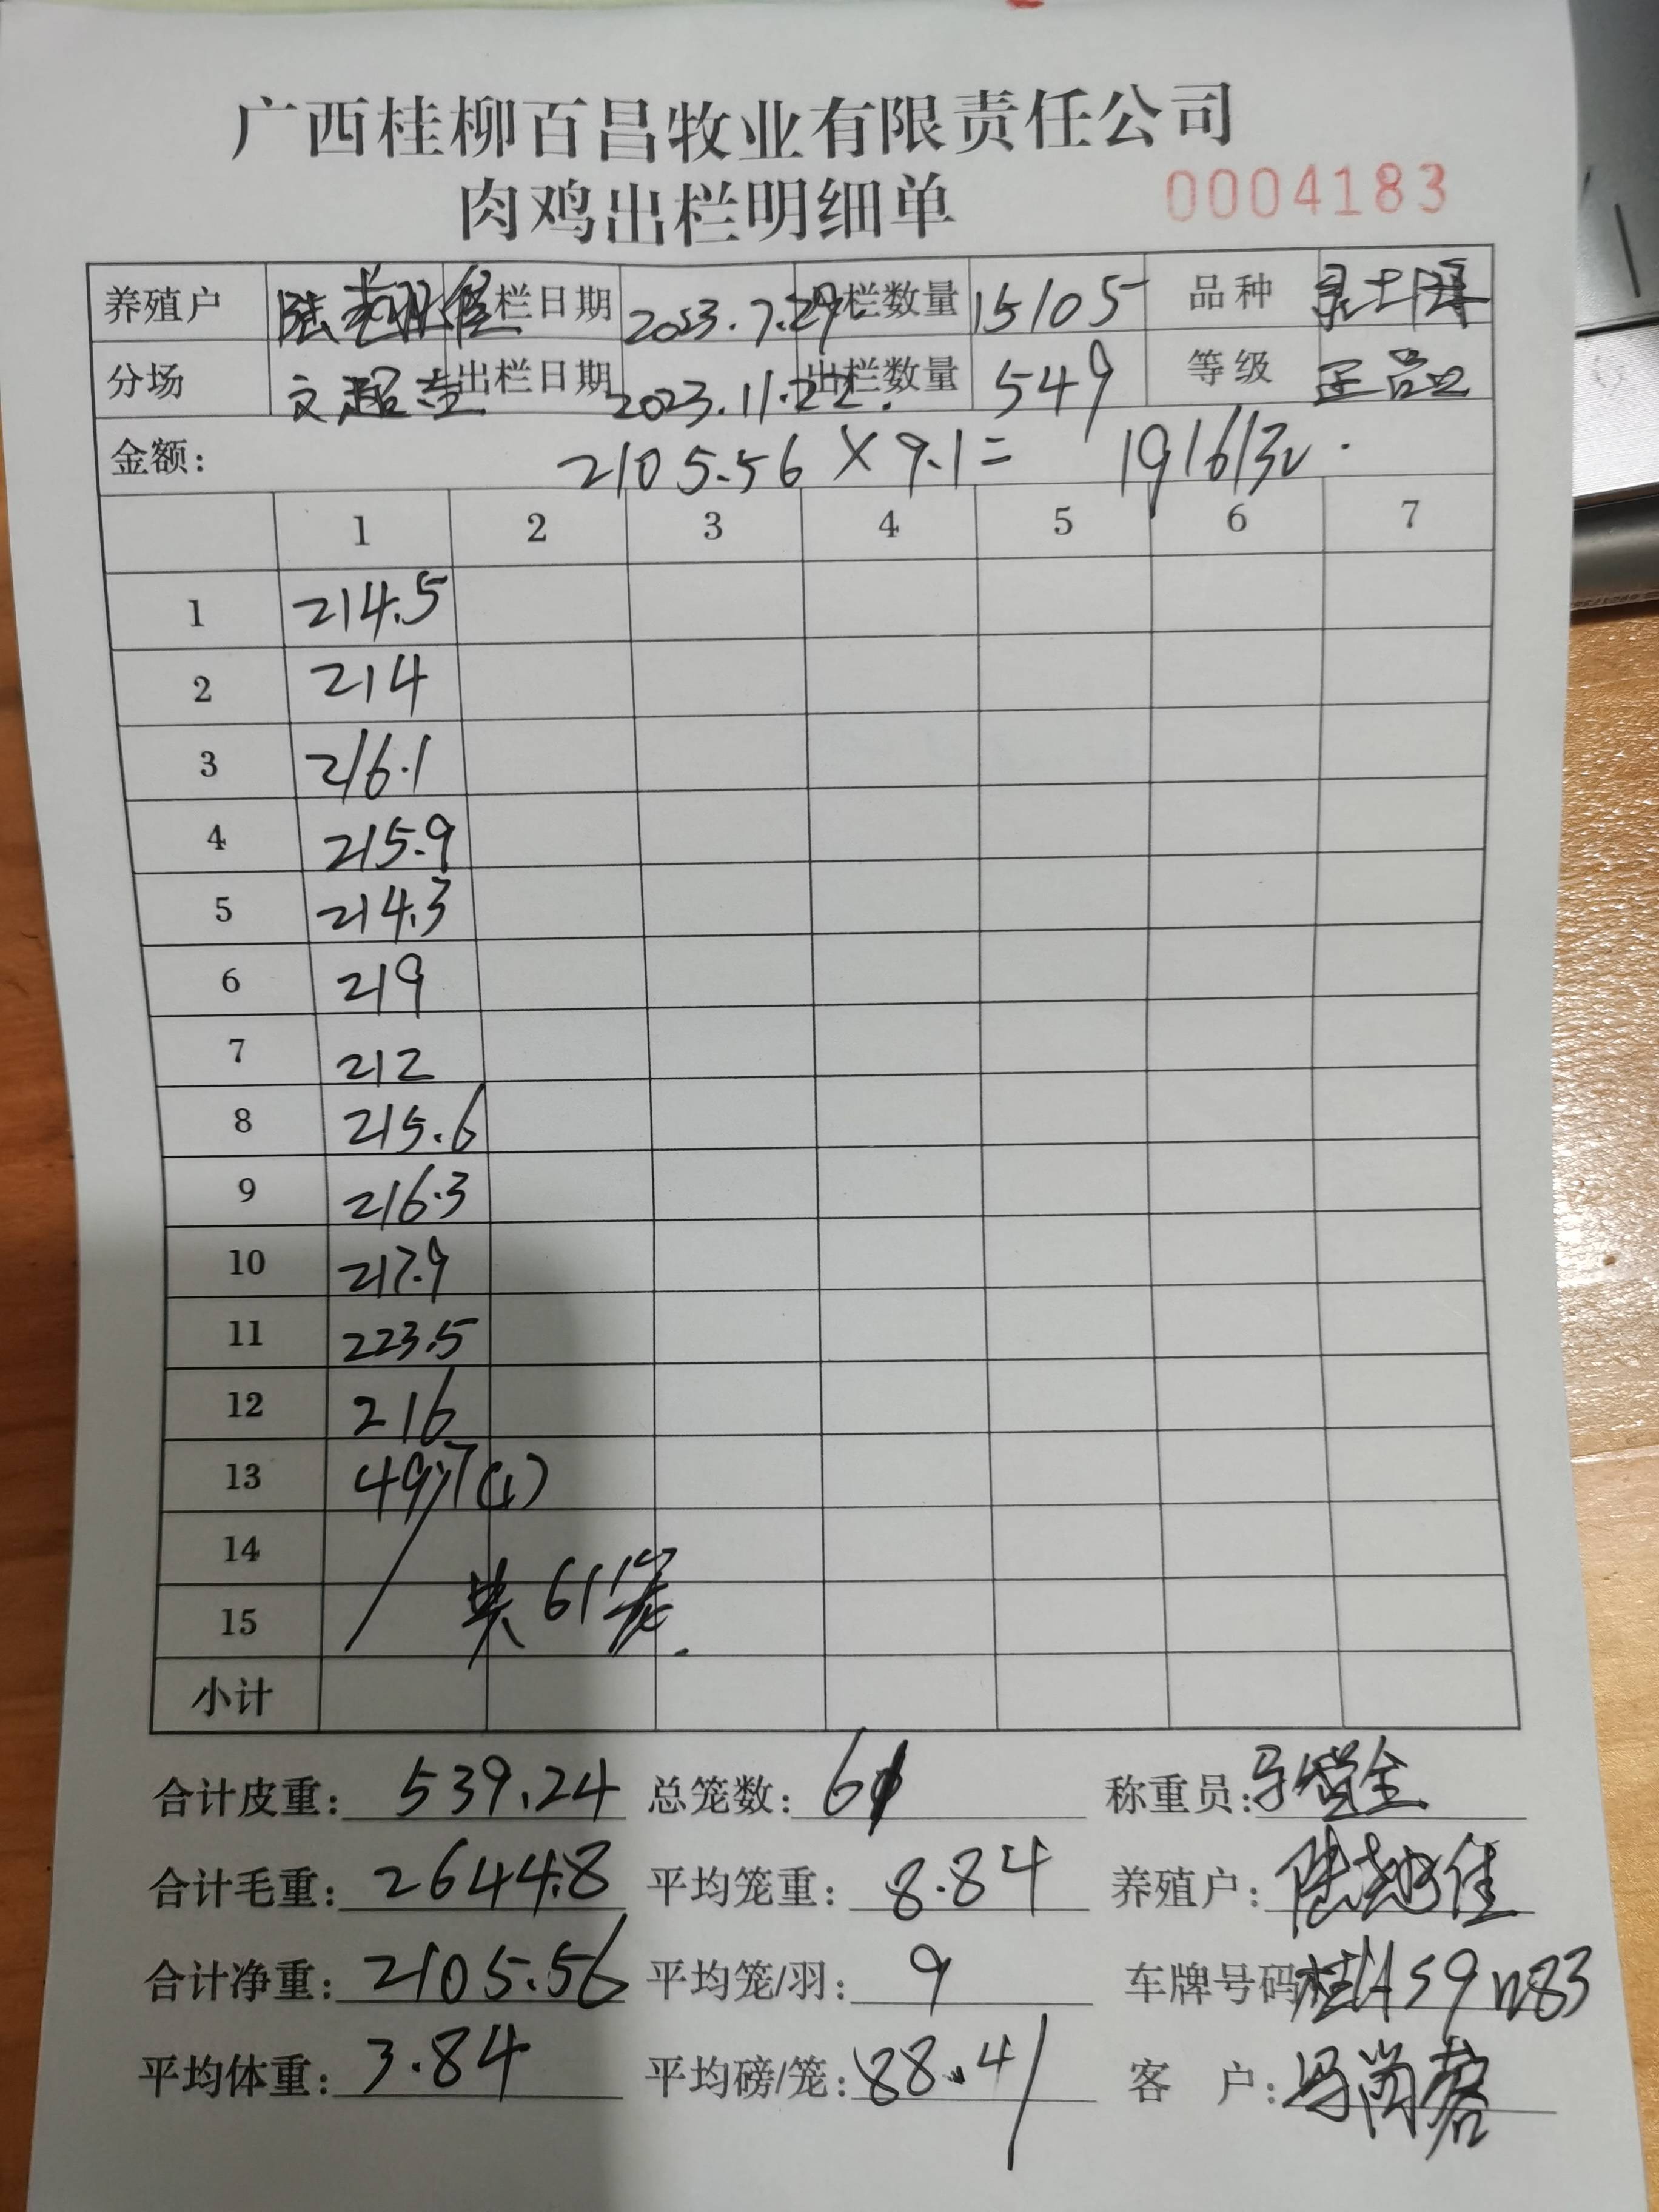 广西桂柳百昌牧业有限责任公司
肉鸡出栏明细单 0004183
养殖户 陆 佳 栏日期 2023.7.29 栏数量 15105 品种
分场 文超 出栏日期 2023.11.22. 出栏数量 549 等级 正品
金额: 2105.56×9.1= 19161元.
1 2 3 4 5 6 7
1 214.5
2 214
3 216.1
4 215.9
5 214.3
6 219
7 212
8 215.6
9 216.3
10 217.9
11 223.5
12 216
13 49.7(1)
14
15 共61笼.
小计
合计皮重: 539.24 总笼数: 61 称重员:
合计毛重: 2644.8 平均笼重: 8.84 养殖户: 陆 佳
合计净重: 2105.56 平均笼/羽: 9 车牌号码 桂A59N83
平均体重: 3.84 平均磅/笼: 88.4 客 户: 冯尚